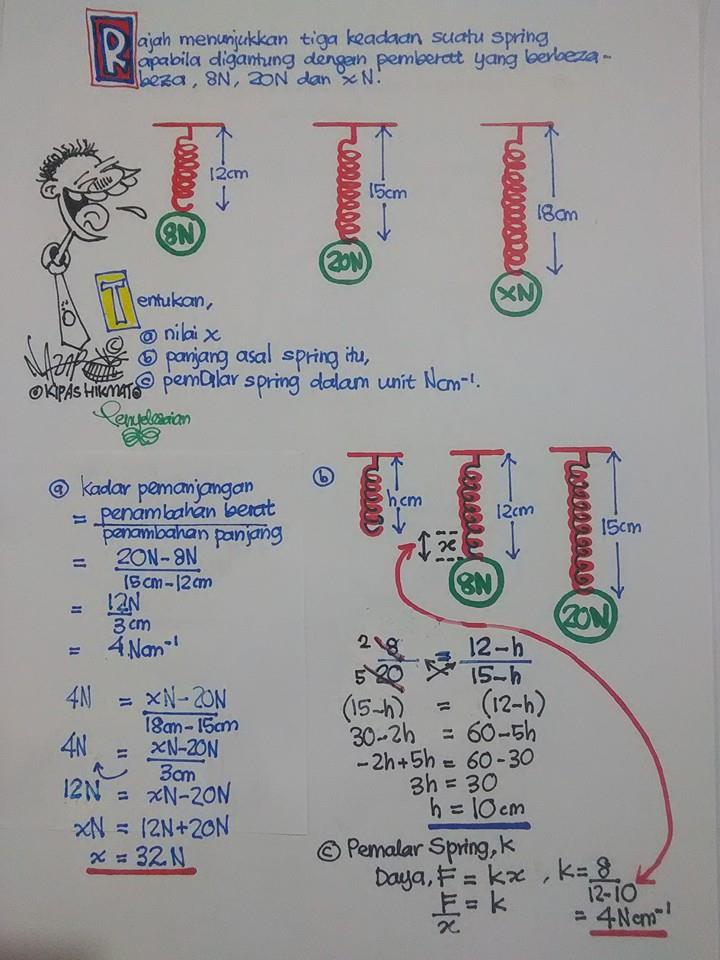 Rajah menunjukkan tiga keadaan suatu spring
apabila digantung dengan pemberatt yang berbeza-
beza, 8N, 20N dan xN.
12cm
15cm
18cm
8N
20N
XN
Tentukan,
ⓐ nilai x
ⓑ panjang asal spring itu,
ⓒ pemalar spring dalam unit Ncm⁻¹.
©
© KIPAS HIKMAT
Penyelesaian
ⓐ kadar pemanjangan
= penambahan berat
penambahan panjang
= 20N-8N
15cm-12cm
= 12N
3cm
= 4Ncm⁻¹
4N = xN-20N
18cm-15cm
4N = xN-20N
3cm
12N = xN-20N
xN = 12N+20N
x = 32N
ⓑ
hcm
12cm
15cm
x
8N
20N
2 8 = 12-h
5 20 15-h
(15-h) = (12-h)
30-2h = 60-5h
-2h+5h = 60-30
3h = 30
h = 10cm
ⓒ Pemalar Spring, k
Daya, F = kx , k = 8
12-10
F = k
x
= 4Ncm⁻¹